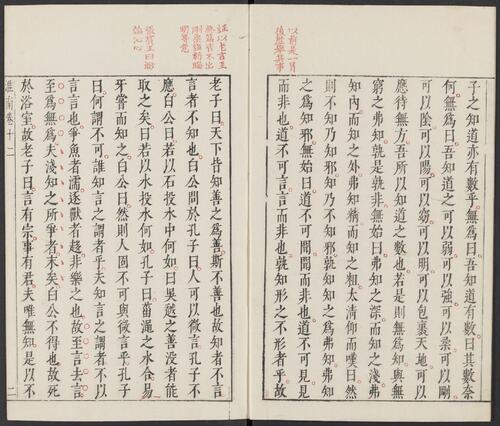 以前是一冒
後歷舉其事
子之知道亦有數乎無為曰吾知道有數曰其數奈
何無為曰吾知道之可以弱可以強可以柔可以剛
可以陰可以陽可以窈可以明可以包裹天地可以
應待無方吾所以知道之數也若是則無為知與無
窮之弗知孰是孰非無始曰弗知之深而知之淺弗
知內而知之外弗知精而知之粗太清仰而嘆曰然
則不知乃知邪知乃不知邪孰知知之為弗知弗知
之為知邪無始曰道不可聞聞而非也道不可見見
而非也道不可言言而非也孰知形之不形者乎故
老子曰天下皆知善之為善斯不善也故知者不言
言者不知也白公問於孔子曰人可以微言孔子不
應白公曰若以石投水中何如曰吳越之善沒者能
取之矣曰若以水投水何如孔子曰菑澠之水合易
牙嘗而知之白公曰然則人固不可與微言乎孔子
曰何謂不可誰知言之謂者乎夫知言之謂者不以
言言也爭魚者濡逐獸者趍非樂之也故至言去言
至為無為夫淺知之所爭者末矣白公不得也故死
於浴室故老子曰言有宗事有君夫唯無知是以不
淮南卷十二 二